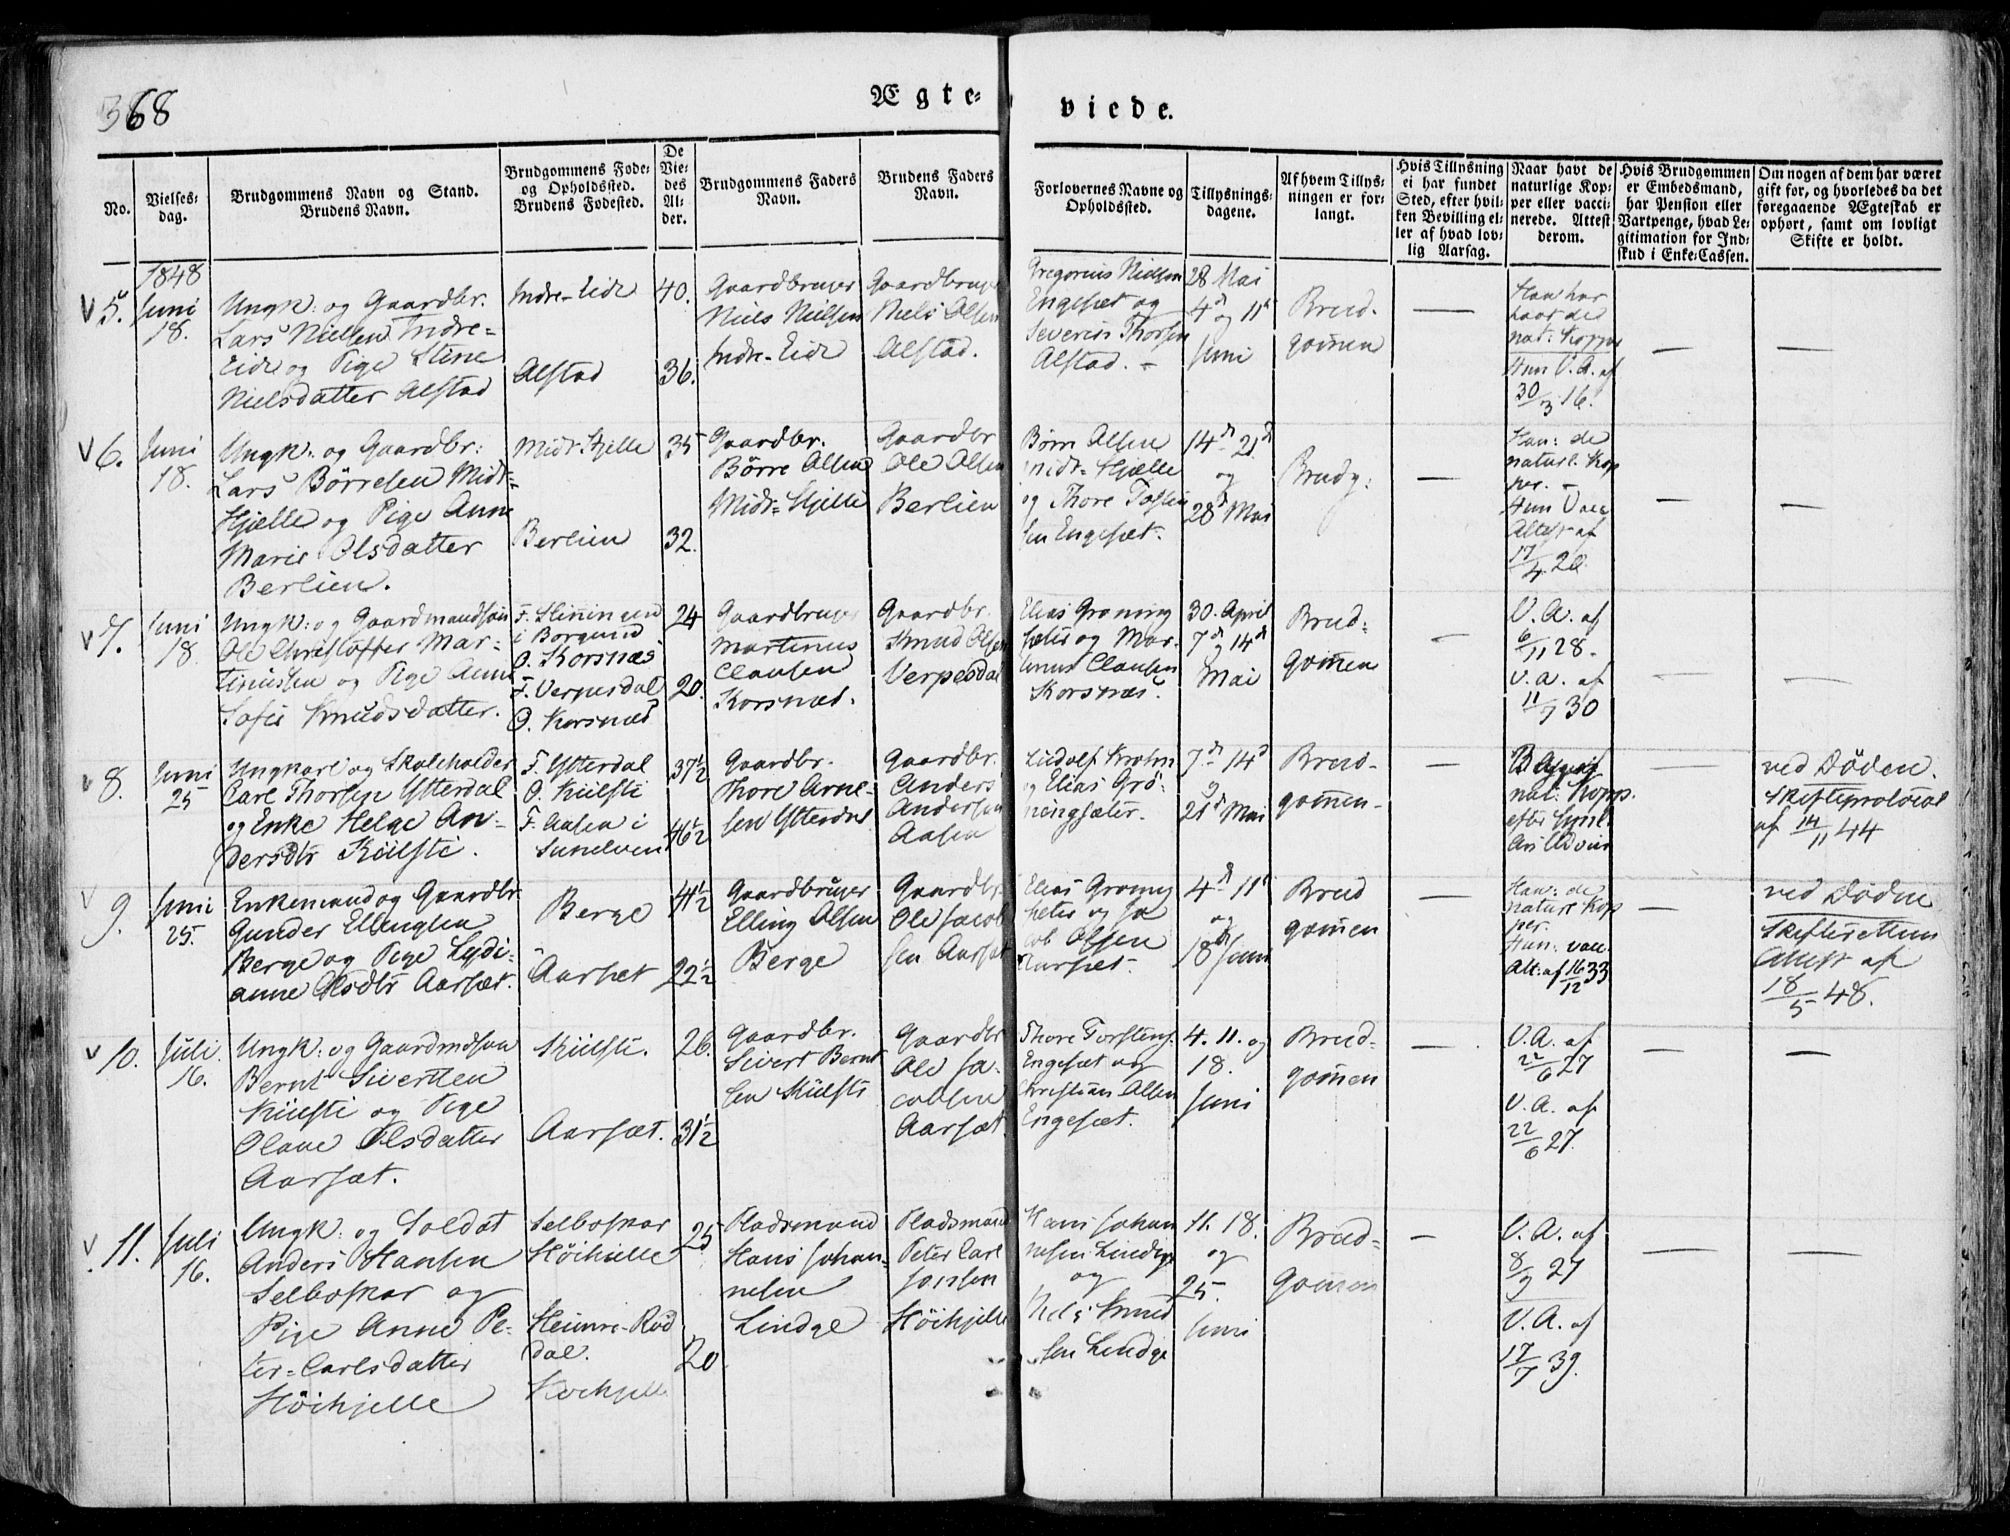 368
Ægte-
viede.
No.
Vielses-
dag.
Brudgommens Navn og Stand.
Brudens Navn.
Brudgommens Føde-
og Opholdssted.
Brudens Fødested.
De
Vie-
des
Al-
der.
Brudgommens Faders
Navn.
Brudens Faders
Navn.
Forlovernes Navne og
Opholdssted.
Tillysnings-
dagene.
Af hvem Tillys-
ningen er for-
langt.
Hvis Tillysning
ei har fundet
Sted, efter hvil-
ken Bevilling el-
ler af hvad lov-
lig Aarsag.
Naar havt de
naturlige Kop-
per eller vacci-
nerede. Attest
derom.
Hvis Brudgommen
er Embedsmand,
har Pension eller
Vartpenge, hvad Le-
gitimation for Ind-
skud i Enke-Cassen.
Om nogen af dem har været
gift før, og hvorledes da det
foregaaende Ægteskab er
ophørt, samt om lovligt
Skifte er holdt.
1848
V 5.
Juni
18.
Ungk: og Gaardbr.
Lars Nielsen Indre-
Eide og Pige Stine
Nielsdatter Alstad
Indre-Eide
Alstad
40.
36.
Gaardbruger
Niels Nielsen
Indre-Eide
Gaardbruger
Niels Olsen
Alstad.
Gregorius Nielsen
Engesæt og
Severin Thorsen
Alstad. -
28 Mai
4d og 11t
Juni
Brud-
gommen
—
Han har
havt de
nat: Kopper
Hun V. A. af
30/3 16.
—
—
V 6.
Juni
18.
Ungk: og Gaardbr:
Lars Børresen Midt-
Hjelle og Pige Anne
Marie Olsdatter
Berlien.
Midt-Hjelle
Berlien
35
32.
Gaardbr.
Børre Olsen
Midt-Hjelle
Gaardbr
Ole Olsen
Berlien
Børre Olsen
Midt-Hjælle
og Thore Tosten
sen Engesæt.
14d 21d
og
28d Mai
Brudg:
—
Han: de
naturl. Kop
per. -
Hun Vacc
Attest af
17/4 20.
—
—
V 7.
Juni
18.
Ungk: og Gaardmandssøn
Ole Christoffer Mar-
tinussen og Pige Anne
Sofie Knudsdatter.
F. Slinningen
i Borgund
O. Korsnæs
F. Verpesdal
O. Korsnæs
24
20.
Gaardbruger
Martinus
Clausen
Korsnæs.
Gaardbr.
Knud Olsen
Verpesdal
Elias Groning
sæter og Mar-
tinus Clausen
Korsnæs.
30. April
7d og 14d
Mai
Brud-
gommen
—
V. A. af
6/11 28.
V. A. af
11/7 30
—
—
V 8.
Juni
25
Ungkarl og Skoleholder
Carl Thorsen Ytterdal
og Enke Helge An-
dersdtr Kilsti.
F. Ytterdal
O. Kilsti
F. Aasen i
Sunelven
37 1/2
46 1/2
Gaardbr.
Thore Arne-
sen Ytterdal
Gaardbr.
Anders
Andersen
Aasen
Ludolf Krohn
og Elias Grø-
ningsæter.
7d 14d
og
21d Mai
Brud-
gommen-
—
nat: Kopp.
efter
—
ved Døden.
Skifteprotocol
af 14/11 44
V 9.
Juni
25.
Enkemand og Gaardbr
Gunder Ellingsen
Berge og Pige Lydi-
anne Olsdtr Aarsæt.
Berge
Aarsæt
41 1/2
22 1/2
Gaardbruger
Elling Olsen
Berge
Gaardbr
Ole Jacob
sen Aarsæt
Elias Groning
seter og Ja
cob Olsen
Aarsæt.
4d 11t
og
18d Juni
Brud
gommen
—
Han: de
naturl Kop
per.
Hun: vacc.
Att: af 16/12 33
—
ved Døden
Skifterettens
Attest af
18/5 48.
V 10.
Juli
16.
Ungk: og Gaardmdsøn
Bernt Sivertsen
Kilsti og Pige
Olave Olsdatter
Aarsæt.
Kilsti.
Aarsæt.
26.
31 1/2
Gaardbr.
Sivert Bernt
sen Kilsti
Gaardbr
Ole Ja-
cobsen
Aarsæt.
Thore Torstens.
Engesæt og
Christian Olsen
Engesæt.
4. 11. og
18.
Juni
Brud-
gommen
—
V. A. af
22/6 27
V. A. af
22/6 27.
—
—
V 11.
Juli
16.
Ungk: og Soldat
Anders Hansen
Selboskar og
Pige Anne Pe-
ter-Carlsdatter
Høihjelle
Selboskar
Høihjelle
Heimre-Rød
dal.
Høihjelle
25
20
Pladsmand
Hans Johan-
nesen
Lindge
Pladsmand
Peter Carl
Jonsen
Høihjelle
Hans Johan
nesen Lindge
og
Niels Knud
sen Lindge
11. 18.
og
25.
Juni
Brud-
gommen
—
V. A. af
8/9 27
V. A. af
17/7 39.
—
—